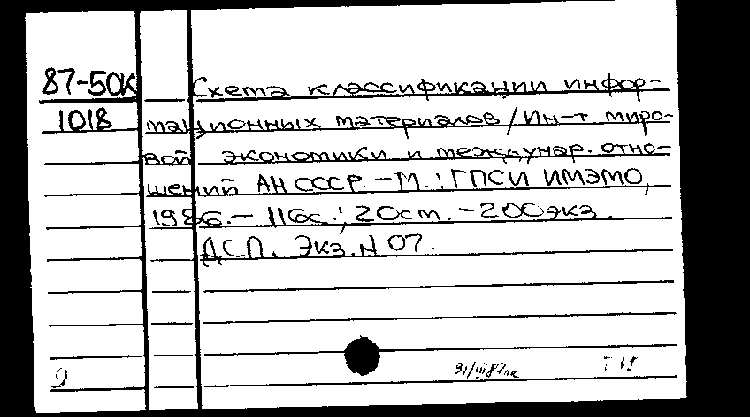 87-50К Схема классификации инфор-
1018 мационных материалов / Ин-т миро-
вой экономики и междунар. отно-
шений АН СССР – М.: ГПСИ ИМЭМО,
1986. – 116с.; 20см. – 200экз.
ДСП. Экз. N 07.
31/III 87